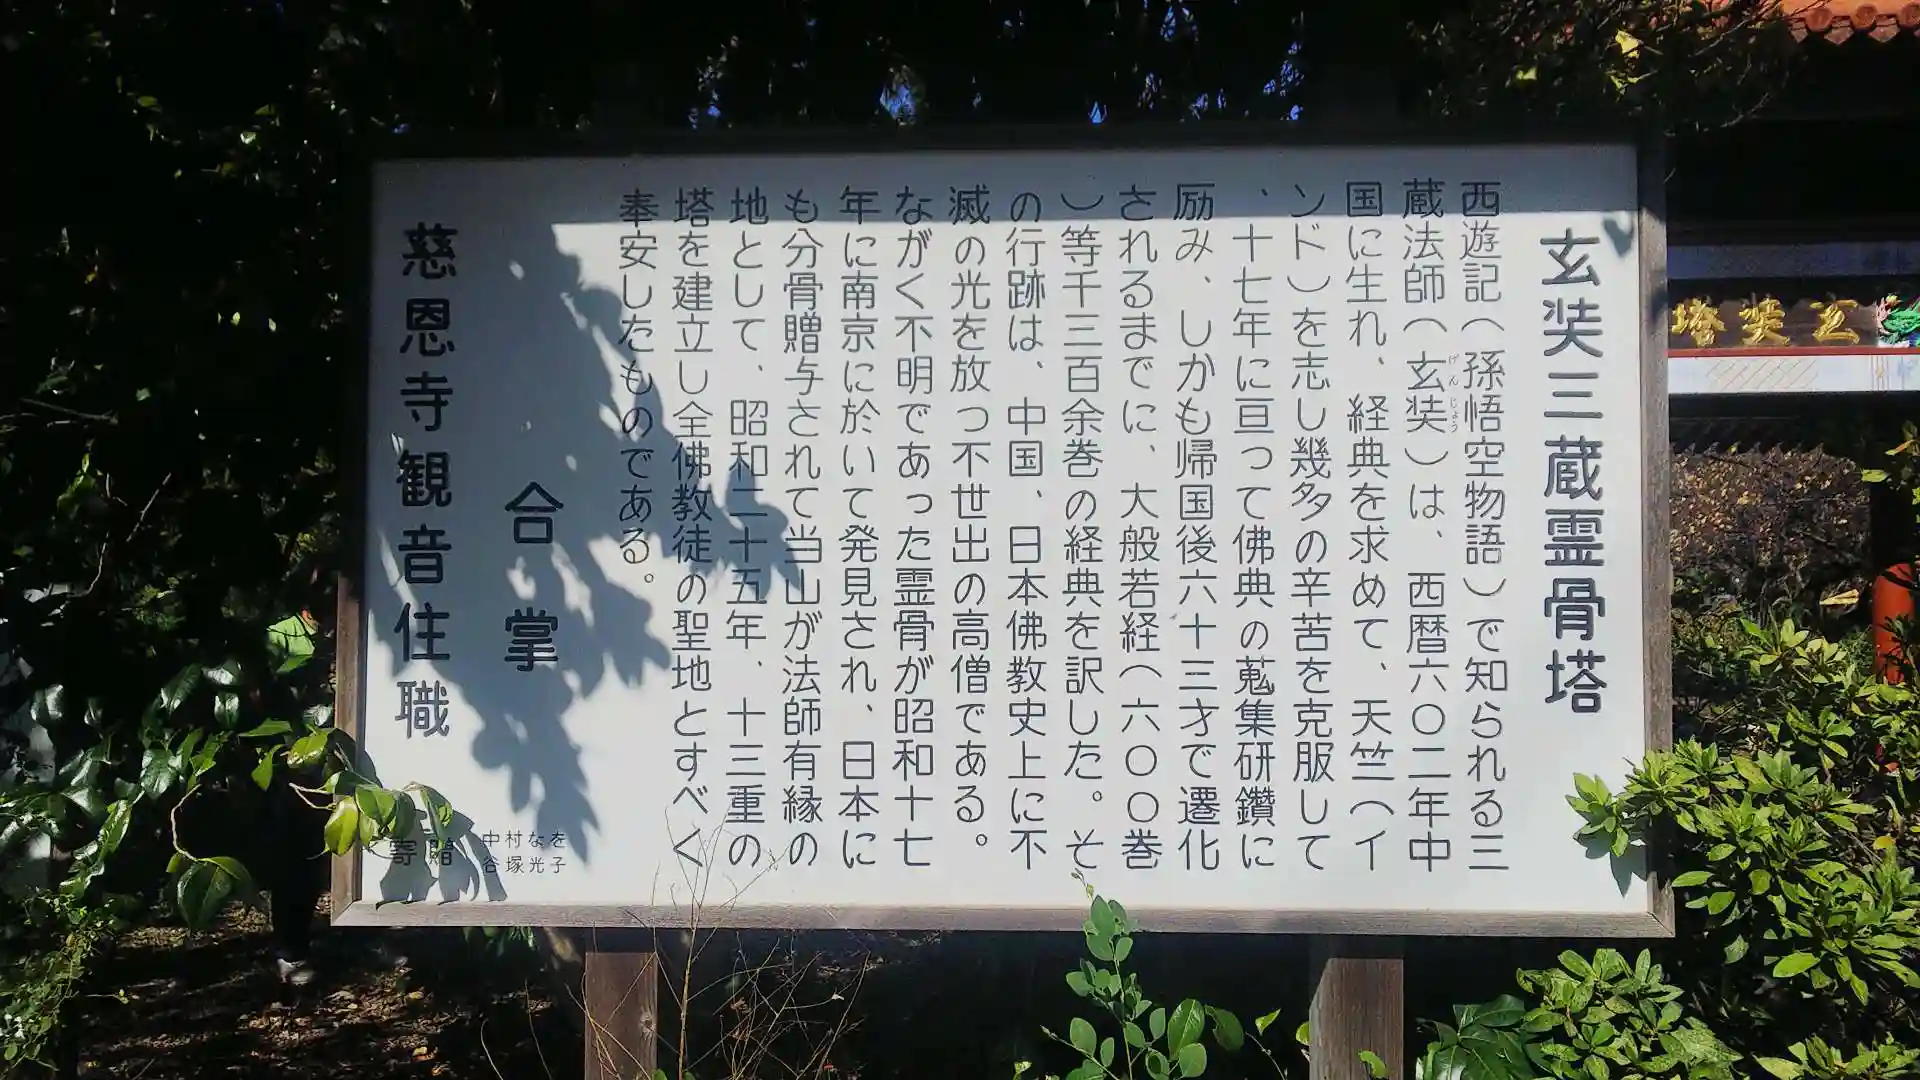 玄奘三蔵霊骨塔
西遊記（孫悟空物語）で知られる三
蔵法師（玄奘）は、西暦六〇二年中
げんじょう
国に生れ、経典を求めて、天竺（イ
ンド）を志し幾多の辛苦を克服して
、十七年に亘って佛典の蒐集研鑽に
励み、しかも帰国後六十三才で遷化
されるまでに、大般若経（六〇〇巻
）等千三百余巻の経典を訳した。そ
の行跡は、中国、日本佛教史上に不
滅の光を放っ不世出の高僧である。
ながく不明であった霊骨が昭和十七
年に南京に於いて発見され、日本に
も分骨贈与されて当山が法師有縁の
地として、昭和二十五年、十三重の
塔を建立し全佛教徒の聖地とすべく
奉安したものである。
合掌
慈恩寺観音住職
寄贈
中村なを
谷塚光子
玄奘塔